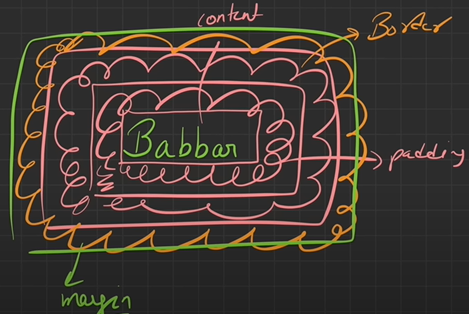 content
Border
Babbar
padding
margin